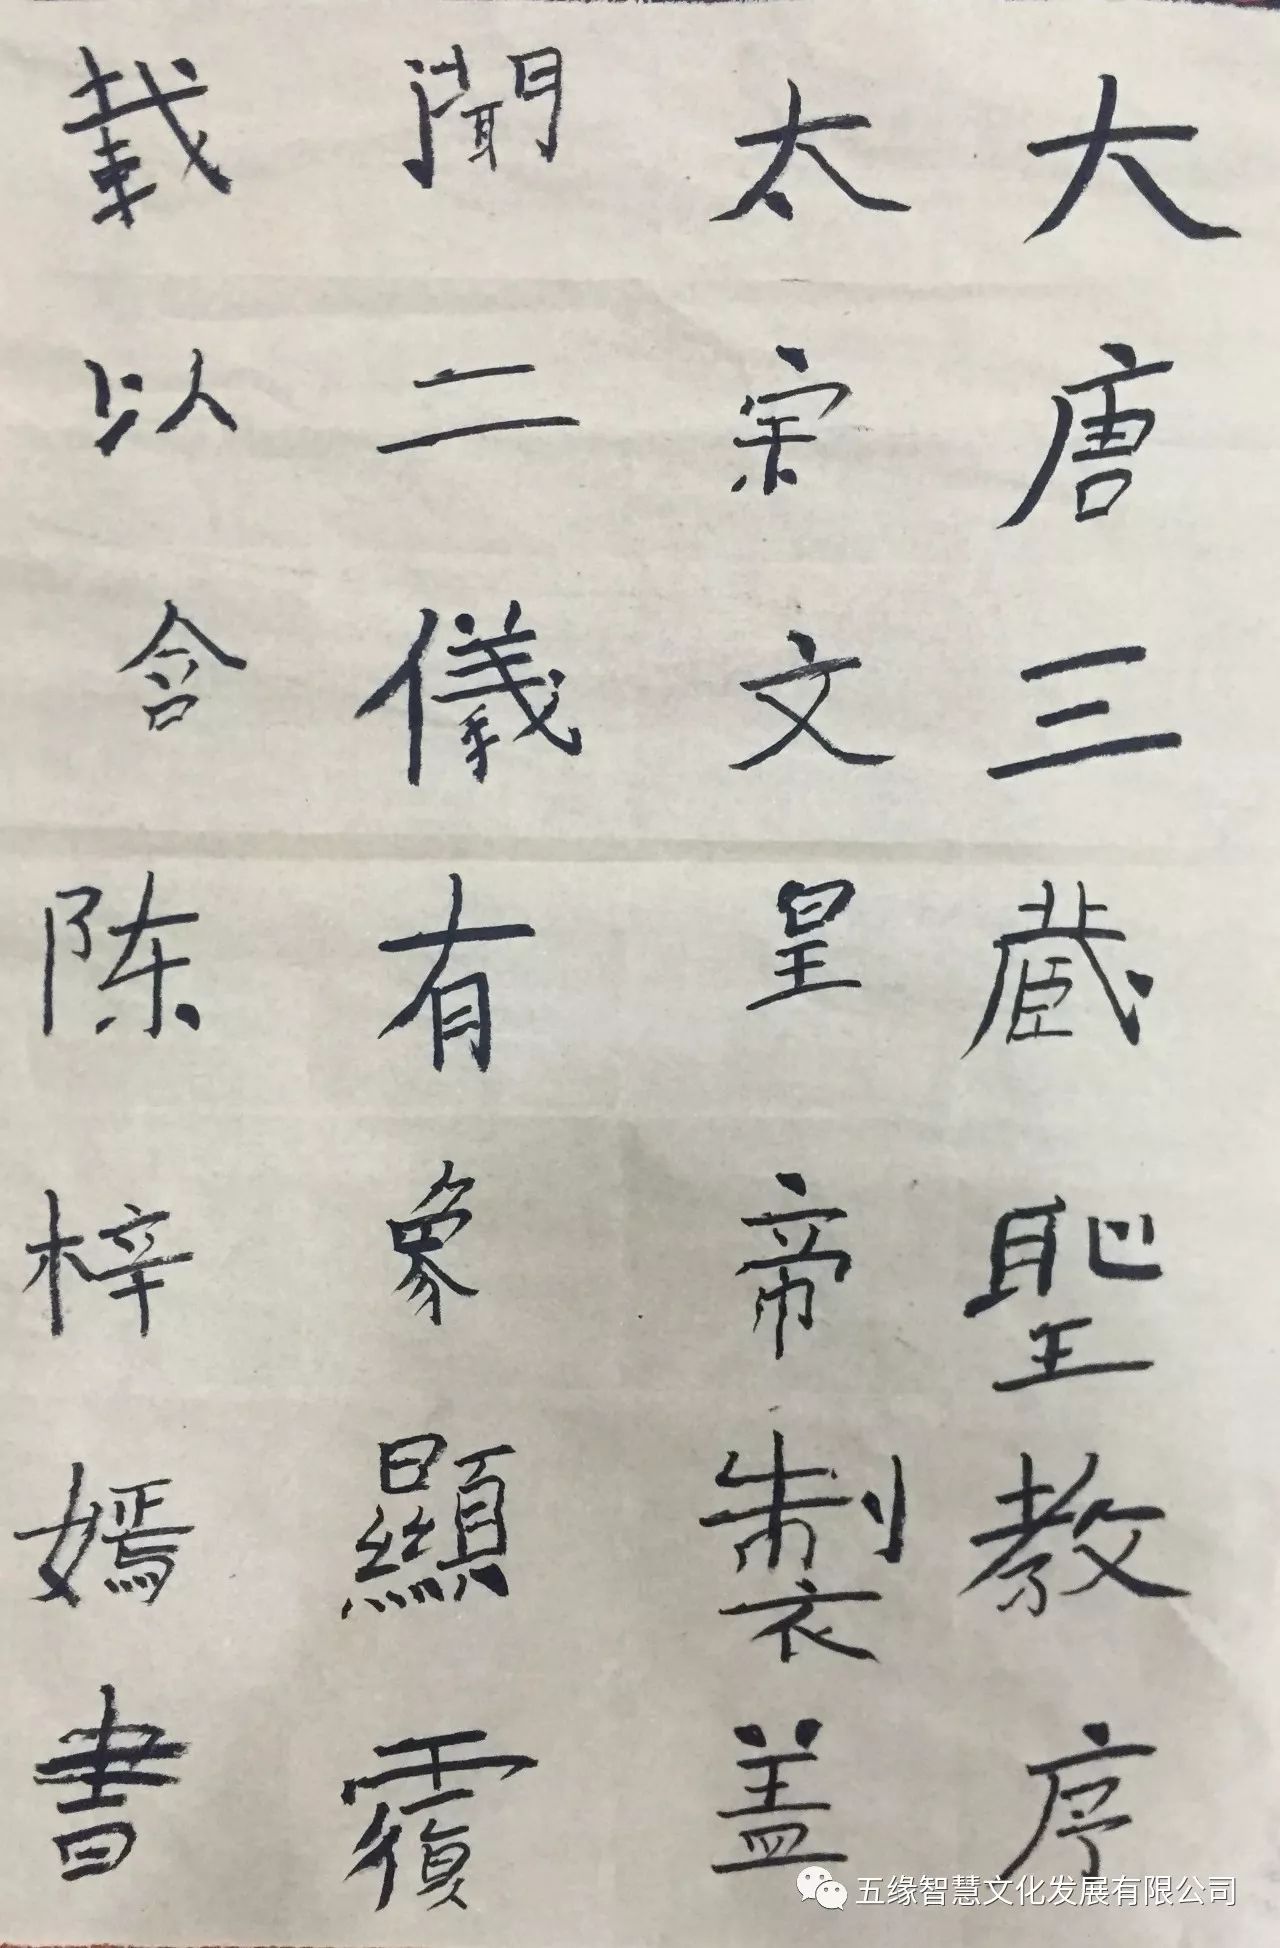 大唐三蔵聖教序
太宗文皇帝製盖
聞二儀有象顯覆
載以含陈梓嫣書
五缘智慧文化发展有限公司